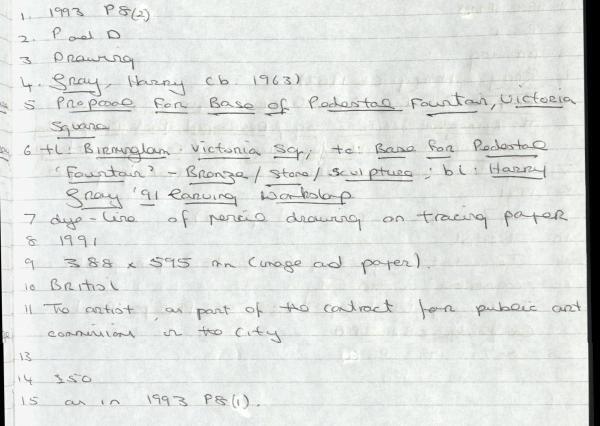 1. 1993 P8(2)
2. P and D
3 Drawing
4. Gray, Harry (b. 1963)
5 Proposal for Base of Pedestal Fountain, Victoria
Square
6 tl: Birmingham. Victoria Sq, tc: Base for Pedestal
'Fountain' - Bronze / stone / sculpture ; bl: Harry
Gray '91 Carving Workshop
7 dye-line of pencil drawing on tracing paper
8 1991
9 388 x 595 mm (image and paper).
10 British
11 The artist, as part of the contract for public art
commissions in the City
13
14 £50
15 as in 1993 P8(1).